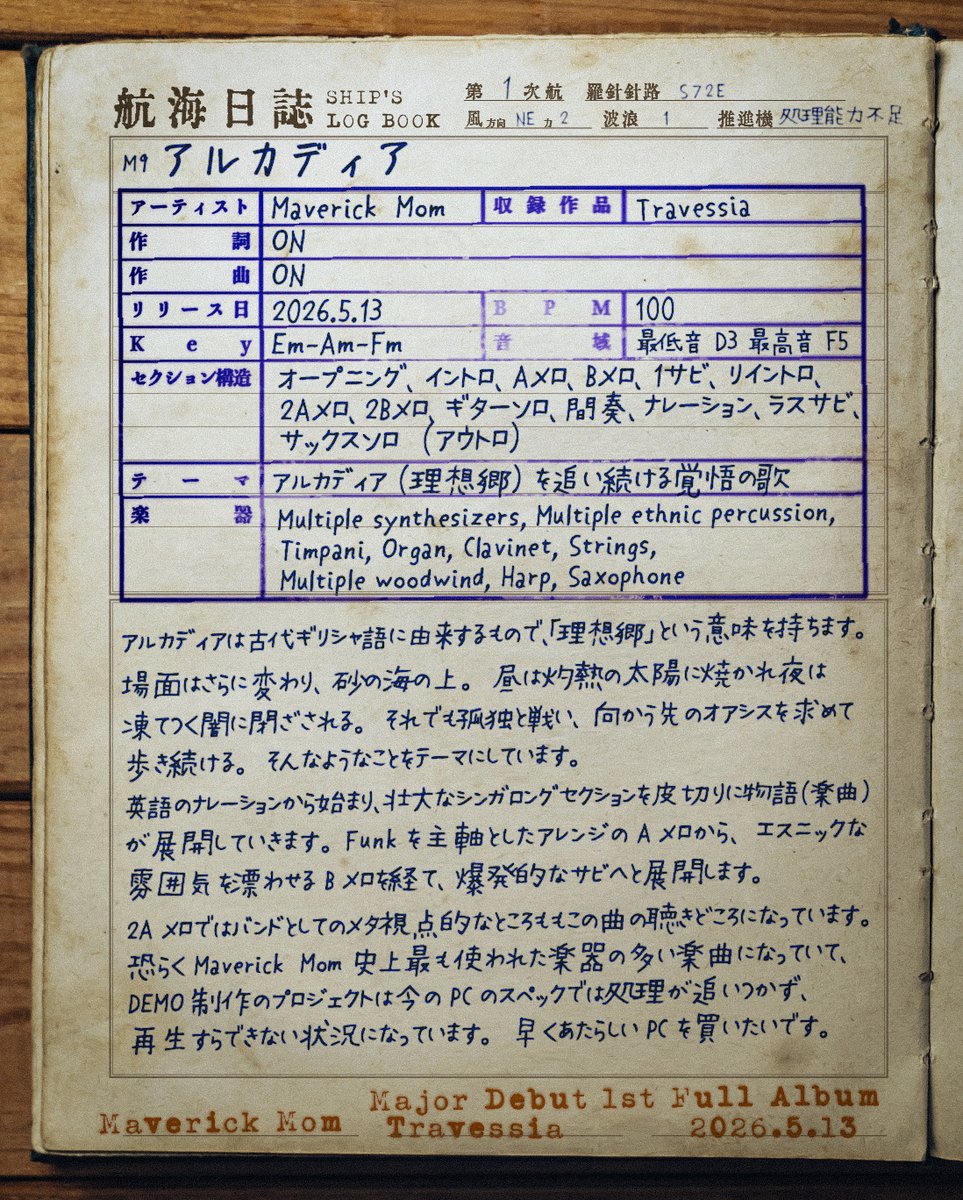 航海日誌 SHIP'S LOG BOOK
第 1 次航 羅針針路 S72E
風方向 NE 力 2 波浪 1 推進機 処理能力不足
M9 アルカディア
アーティスト Maverick Mom 収録作品 Travessia
作詞 ON
作曲 ON
リリース日 2026.5.13 BPM 100
Key Em-Am-Fm 音域 最低音 D3 最高音 F5
セクション構造 オープニング、イントロ、Aメロ、Bメロ、1サビ、リイントロ、
2Aメロ、2Bメロ、ギターソロ、間奏、ナレーション、ラスサビ、
サックスソロ (アウトロ)
テーマ アルカディア (理想郷) を追い続ける覚悟の歌
楽器 Multiple synthesizers, Multiple ethnic percussion,
Timpani, Organ, Clavinet, Strings,
Multiple woodwind, Harp, Saxophone
アルカディアは古代ギリシャ語に由来するもので、「理想郷」という意味を持ちます。
場面はさらに変わり、砂の海の上。 昼は灼熱の太陽に焼かれ夜は
凍てつく闇に閉ざされる。 それでも孤独と戦い、向かう先のオアシスを求めて
歩き続ける。 そんなようなことをテーマにしています。
英語のナレーションから始まり、壮大なシンガロングセクションを皮切りに物語(楽曲)
が展開していきます。Funk を主軸としたアレンジの A メロから、 エスニックな
雰囲気を漂わせる B メロを経て、爆発的なサビへと展開します。
2A メロではバンドとしてのメタ視点的なところももこの曲の聴きどころになっています。
恐らく Maverick Mom 史上最も使われた楽器の多い楽曲になっていて、
DEMO 制作のプロジェクトは今の PC のスペックでは処理が追いつかず、
再生すらできない状況になっています。 早くあたらしい PC を買いたいです。
Maverick Mom Major Debut 1st Full Album
Travessia 2026.5.13